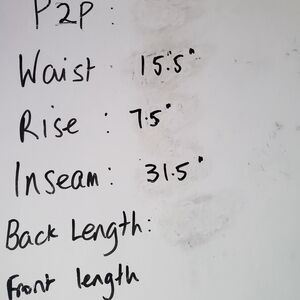 P2P :
Waist 15.5"
Rise : 7.5"
Inseam: 31.5"
Back Length:
Front length